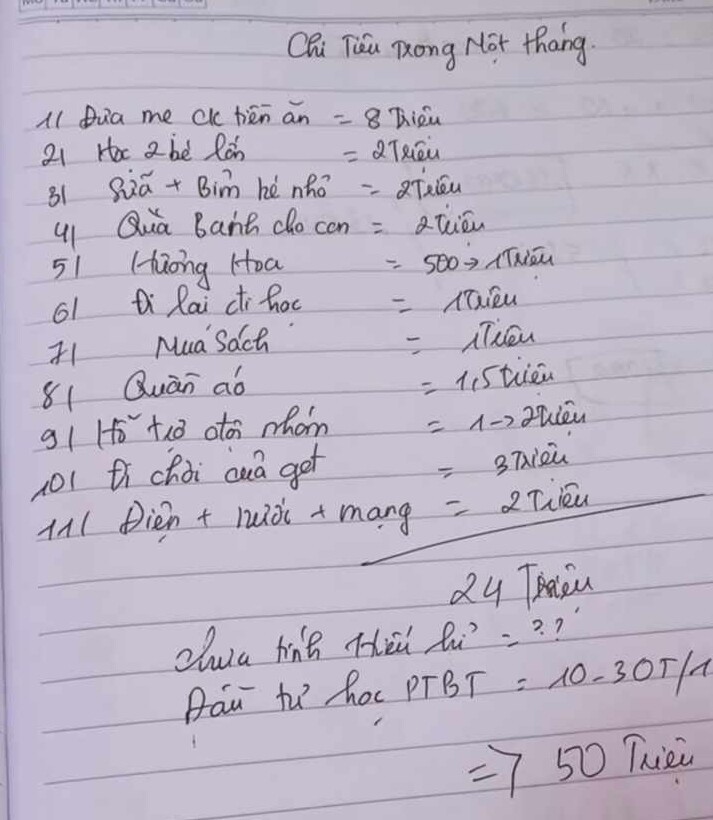 Chi Tiêu Trong Một tháng.
1/ Đưa mẹ ck tiền ăn = 8 Triệu
2/ Học 2 bé lớn = 2 Triệu
3/ Sữa + Bỉm bé nhỏ = 2 Triệu
4/ Quà Bánh cho con = 2 Triệu
5/ Hương Hoa = 500 → 1 Triệu
6/ Đi lại đi học = 1 Triệu
7/ Mua Sách = 1 Triệu
8/ Quần áo = 1,5 triệu
9/ Hỗ trợ đội nhóm = 1 → 2 triệu
10/ Đi chơi quà get = 3 Triệu
11/ Điện + nước + mạng = 2 Triệu
24 Triệu
chưa tính Hiếu hỉ = ??
Đầu tư học PTBT = 10 - 30T/1
=> 50 Triệu